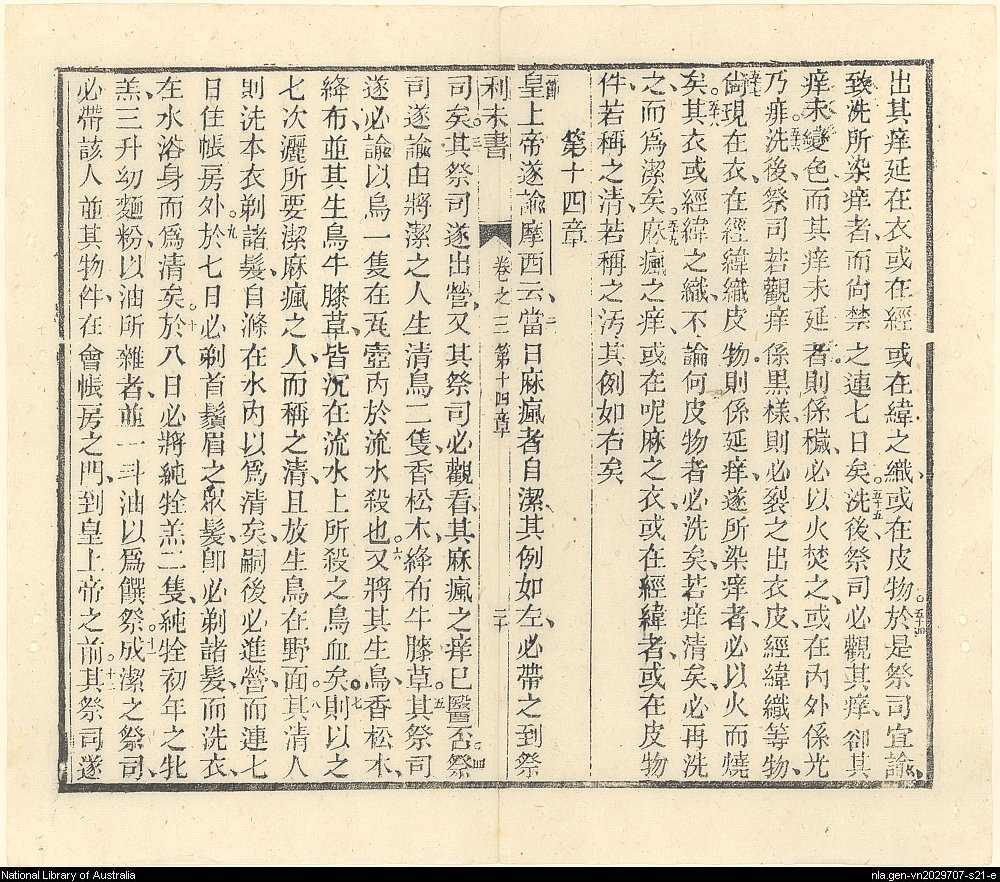 出其痒延在衣或在經或在緯之織或在皮物於是祭司宜諭
致洗所染痒者而尙禁之連七日矣洗後祭司必觀其痒卻其
痒未變色而其痒未延者則係穢必以火焚之或在內外係光
乃痱洗後祭司若觀痒係黑樣則必裂之出衣皮經緯織等物
倘現在衣在經緯織皮物則係延痒遂所染痒者必以火而燒
矣其衣或經緯之織不論何皮物者必洗矣若痒清矣必再洗
之而爲潔矣麻瘋之痒或在呢麻之衣或在經緯者或在皮物
件若稱之清若稱之汚其例如右矣
第十四章
皇上帝遂諭摩西云當日麻瘋者自潔其例如左必帶之到祭
利未書 卷之三 第十四章 二十
司矣其祭司遂出營又其祭司必觀看其麻瘋之痒已醫否祭
司遂諭由將潔之人生清鳥二隻香松木絳布牛膝草其祭司
遂必諭以鳥一隻在瓦壺內於流水殺也又將其生鳥香松木
絳布並其生鳥牛膝草皆沉在流水上所殺之鳥血矣則以之
七次灑所要潔麻瘋之人而稱之清且放生鳥在野面其清人
則洗本衣剃諸髮自滌在水內以爲清矣嗣後必進營而連七
日住帳房外於七日必剃首鬚眉之眾髮卽必剃諸髮而洗衣
在水浴身而爲清矣於八日必將純牷羔二隻純牷初年之牝
羔三升幼麵粉以油所雜者並一斗油以爲饌祭成潔之祭司
必帶該人並其物件在會帳房之門到皇上帝之前其祭司遂
National Library of Australia
nla.gen-vn2029707-s21-e